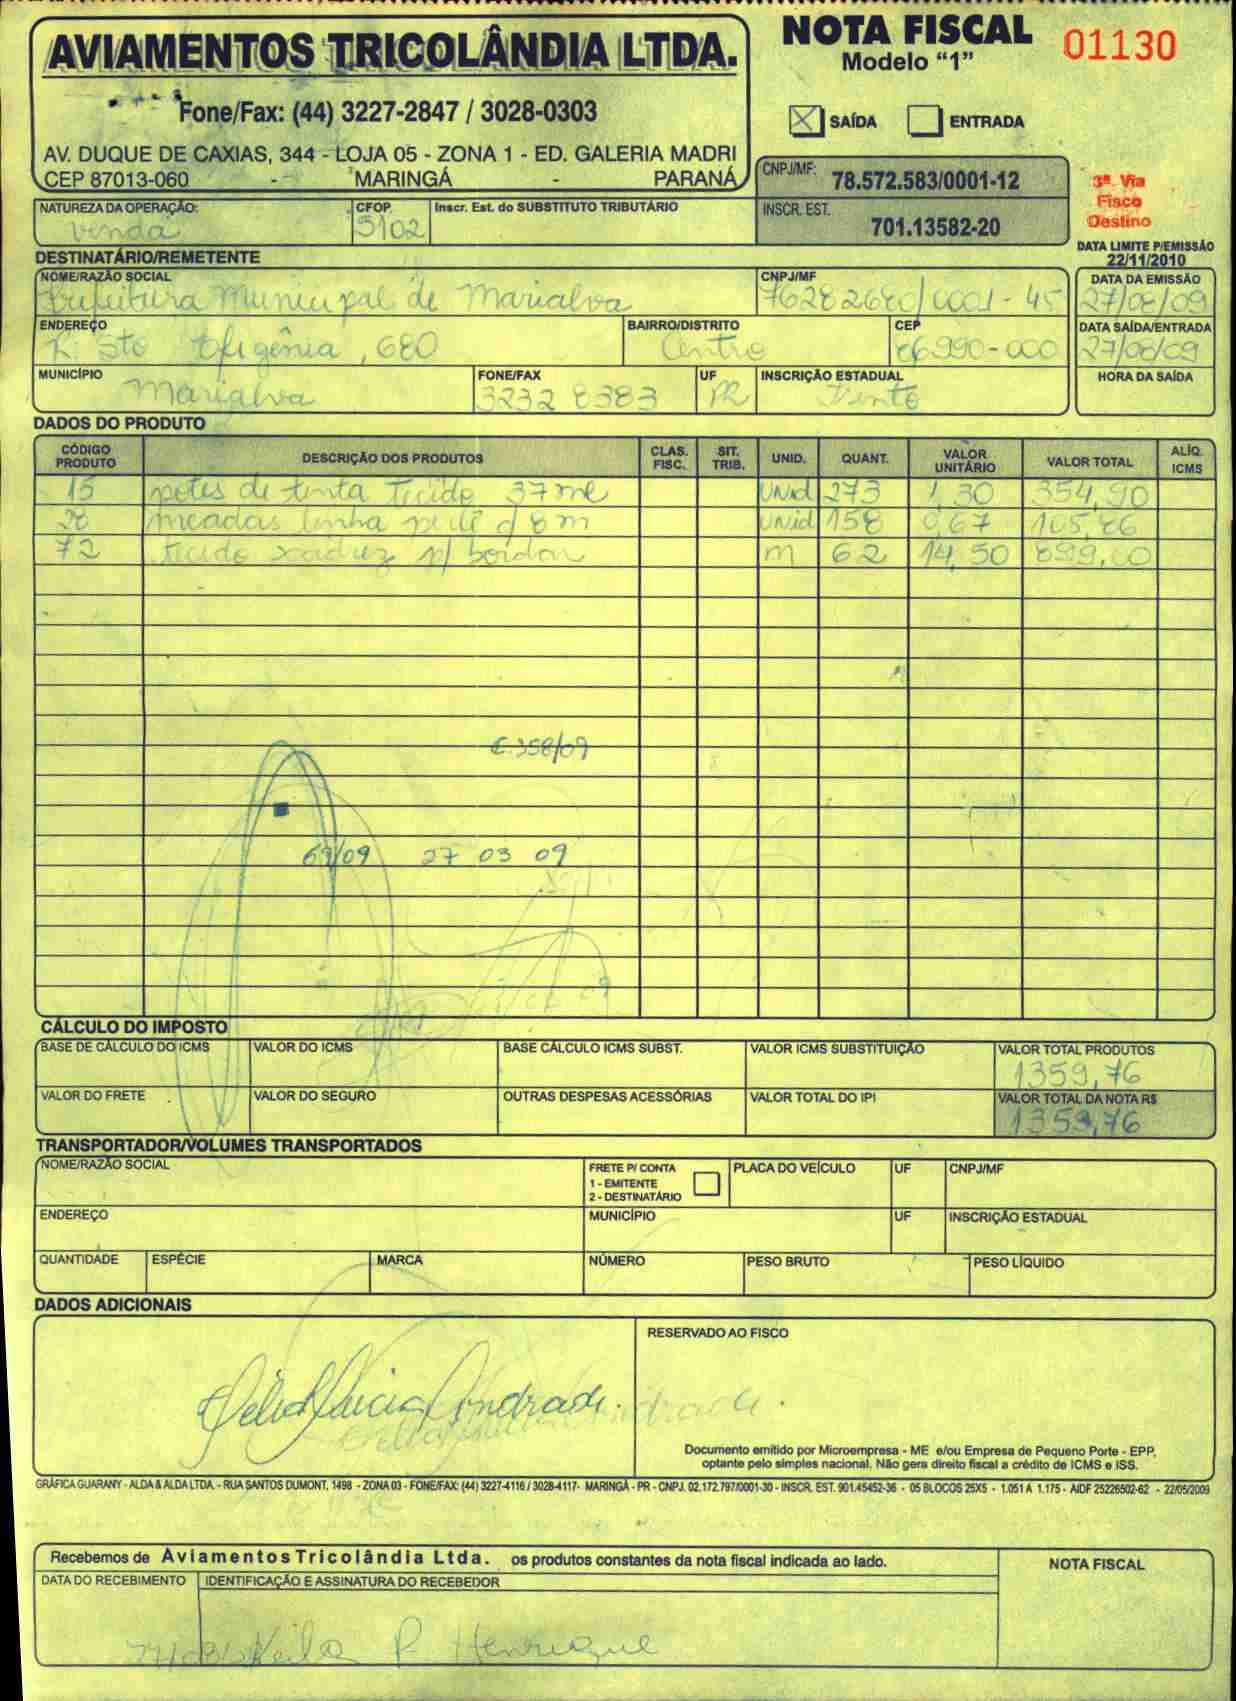 AVIAMENTOS TRICOLÂNDIA LTDA.
Fone/Fax: (44) 3227-2847 / 3028-0303
AV. DUQUE DE CAXIAS, 344 - LOJA 05 - ZONA 1 - ED. GALERIA MADRI
CEP 87013-060 - MARINGÁ - PARANÁ
NOTA FISCAL 01130
Modelo “1”
SAÍDA ENTRADA
CNPJ/MF: 78.572.583/0001-12
INSCR. EST. 701.13582-20
3ª Via
Fisco
Destino
DATA LIMITE P/EMISSÃO
22/11/2010
NATUREZA DA OPERAÇÃO: CFOP Inscr. Est. do SUBSTITUTO TRIBUTÁRIO
venda 5102
DESTINATÁRIO/REMETENTE
NOME/RAZÃO SOCIAL CNPJ/MF DATA DA EMISSÃO
Prefeitura Municipal de Marialva 76282680/0001-45 27/08/09
ENDEREÇO BAIRRO/DISTRITO CEP DATA SAÍDA/ENTRADA
R. Sta Efigênia, 680 Centro 86990-000 27/08/09
MUNICÍPIO FONE/FAX UF INSCRIÇÃO ESTADUAL HORA DA SAÍDA
Marialva 3232 8383 PR Isento
DADOS DO PRODUTO
CÓDIGO PRODUTO DESCRIÇÃO DOS PRODUTOS CLAS. FISC. SIT. TRIB. UNID. QUANT. VALOR UNITÁRIO VALOR TOTAL ALÍQ. ICMS
15 potes de tinta tecido 37 ml Unid 273 1,30 354,90
28 meadas linha c/ 8 m Unid 158 0,67 105,86
72 tecido xadrez p/ bordar m 62 14,50 899,00
358/09
69/09 27 03 09
CÁLCULO DO IMPOSTO
BASE DE CÁLCULO DO ICMS VALOR DO ICMS BASE CÁLCULO ICMS SUBST. VALOR ICMS SUBSTITUIÇÃO VALOR TOTAL PRODUTOS
1359,76
VALOR DO FRETE VALOR DO SEGURO OUTRAS DESPESAS ACESSÓRIAS VALOR TOTAL DO IPI VALOR TOTAL DA NOTA R$
1359,76
TRANSPORTADOR/VOLUMES TRANSPORTADOS
NOME/RAZÃO SOCIAL FRETE P/ CONTA PLACA DO VEÍCULO UF CNPJ/MF
1 - EMITENTE
2 - DESTINATÁRIO
ENDEREÇO MUNICÍPIO UF INSCRIÇÃO ESTADUAL
QUANTIDADE ESPÉCIE MARCA NÚMERO PESO BRUTO PESO LÍQUIDO
DADOS ADICIONAIS
RESERVADO AO FISCO
Lucia Andrade
Documento emitido por Microempresa - ME e/ou Empresa de Pequeno Porte - EPP,
optante pelo simples nacional. Não gera direito fiscal a crédito de ICMS e ISS.
GRÁFICA GUARANY - ALDA & ALDA LTDA. - RUA SANTOS DUMONT, 1498 - ZONA 03 - FONE/FAX: (44) 3227-4116 / 3028-4117- MARINGÁ - PR - CNPJ. 02.172.797/0001-30 - INSCR. EST. 901.45452-36 - 05 BLOCOS 25X5 - 1.051 A 1.175 - AIDF 25226502-62 - 22/05/2009
Recebemos de Aviamentos Tricolândia Ltda. os produtos constantes da nota fiscal indicada ao lado. NOTA FISCAL
DATA DO RECEBIMENTO IDENTIFICAÇÃO E ASSINATURA DO RECEBEDOR
Keila R Henrique